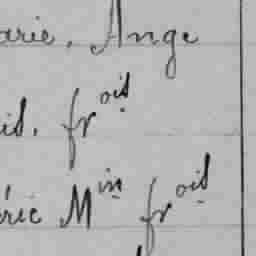 arie, Ange
id. froid
éric Min froid